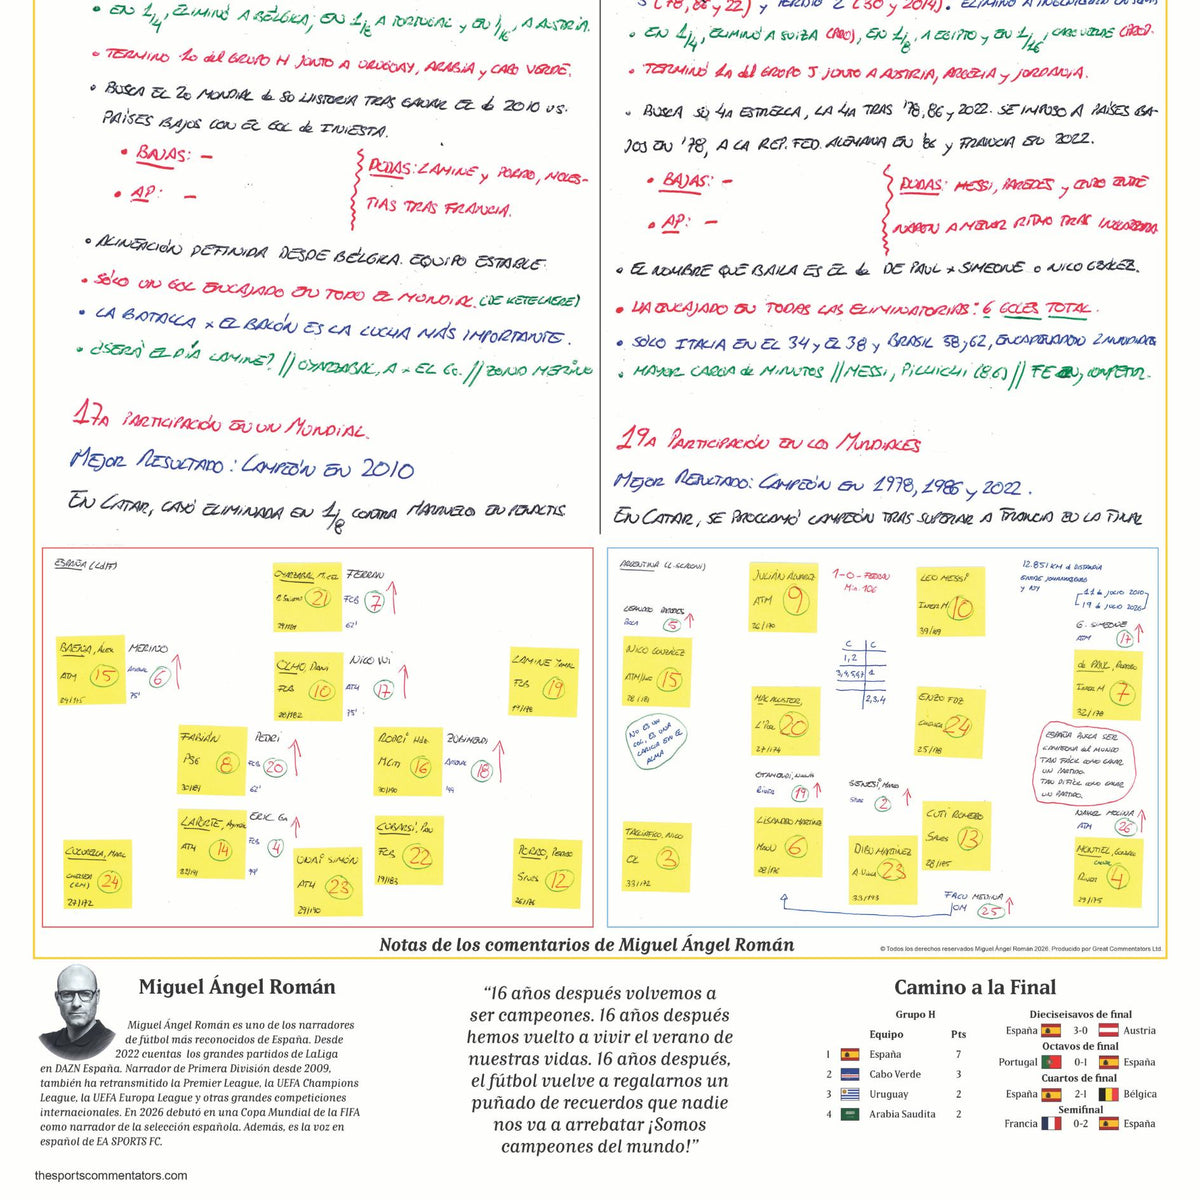 • EN 1/4, ELIMINÓ A BÉLGICA; EN 1/8 A PORTUGAL Y EN 1/16, A AUSTRIA.
• TERMINÓ 1o del GRUPO H JUNTO A URUGUAY, ARABIA y CABO VERDE.
• BUSCA EL 2o MUNDIAL de SU HISTORIA TRAS GANAR EL de 2010 vs.
PAÍSES BAJOS CON EL GOL de INIESTA.
• BAJAS: -
• AP: -
DUDAS: LAMINE y PORRO, MOLES-
TIAS TRAS FRANCIA.
• ALINEACIÓN DEFINIDA DESDE BÉLGICA. EQUIPO ESTABLE.
• SÓLO UN GOL ENCAJADO EN TODO EL MUNDIAL. (DE KETELAERE)
• LA BATALLA x EL BALÓN ES LA LUCHA MÁS IMPORTANTE.
• ¿SERÁ EL DÍA LAMINE? // OYARZABAL, A x EL 6o. // ZONA MERINO
17a PARTICIPACIÓN EN UN MUNDIAL.
MEJOR RESULTADO: CAMPEÓN EN 2010
EN CATAR, CAYÓ ELIMINADA EN 1/8 CONTRA MARRUECOS EN PENALTIS.
3 (78, 86 y 22) y PERDIÓ 2 (30 y 2014). ELIMINÓ A INGLATERRA EN
• EN 1/4, ELIMINÓ A SUIZA (PRO), EN 1/8, A EGIPTO y EN 1/16, CABO VERDE (PRO).
• TERMINÓ 1a del GRUPO J JUNTO A AUSTRIA, ARGELIA y JORDANIA.
• BUSCA SU 4a ESTRELLA, LA 4a TRAS '78, 86 y 2022. SE IMPUSO A PAÍSES BA-
JOS EN '78, A LA REP. FED. ALEMANA EN '86 y FRANCIA EN 2022.
• BAJAS: -
• AP: -
DUDAS: MESSI, PAREDES y ENZO ENTRE
NARON A MENOR RITMO TRAS INGLATERRA
• EL NOMBRE QUE BAILA ES EL de DE PAUL x SIMEONE o NICO GZÁLEZ.
• HA ENCAJADO EN TODAS LAS ELIMINATORIAS: 6 GOLES TOTAL.
• SÓLO ITALIA EN EL 34 y EL 38 y BRASIL 58 y 62, ENCADENARON 2 MUNDIALES
• MAYOR CARGA de MINUTOS // MESSI, PICHICHI (8G) // FE EN, COMPETIR.
19a PARTICIPACIÓN EN LOS MUNDIALES
MEJOR RESULTADO: CAMPEÓN EN 1978, 1986 y 2022.
EN CATAR, SE PROCLAMÓ CAMPEÓN TRAS SUPERAR A FRANCIA EN LA FINAL
ESPAÑA (LdlF)
OYARZABAL, Mikel
R. Sociedad 21
29/181
FERRAN
FCB 7
62'
BAENA, Álex
ATM 15
24/175
MERINO
Arsenal 6
75'
OLMO, Dani
FCB 10
28/182
NICO Wi
ATH 17
75'
LAMINE Yamal
FCB 19
19/178
FABIÁN
PSG 8
30/189
PEDRI
FCB 20
62'
RODRI Hdez
MCity 16
30/190
ZUBIMENDI
Arsenal 18
LAPORTE, Aymeric
ATH 14
32/191
ERIC Ga
FCB 4
CUBARSÍ, Pau
FCB 22
19/183
CUCURELLA, Marc
CHELSEA (RM) 24
27/172
UNAI SIMÓN
ATH 23
29/190
PORRO, Pedro
Spurs 12
26/176
ARGENTINA (L. SCALONI)
JULIÁN ÁLVAREZ
ATM 9
26/170
1-0 - FERRAN
Min. 106
LEO MESSI
Inter M 10
39/169
12.851 KM de DISTANCIA
ENTRE JOHANNESBURGO
y NY
11 de julio 2010
19 de julio 2026
LEANDRO PAREDES
Boca 5
G. SIMEONE
ATM 17
NICO GONZÁLEZ
ATM/Juv 15
28/181
C C
1,2
3,4,5,6,7 1
2,3,4
de PAUL, Rodrigo
Inter M 7
32/178
MAC ALLISTER
L'Pool 20
27/174
ENZO FDZ
Chelsea 24
25/178
NO ES UN
GOL, ES UNA
CARICIA EN EL
ALMA
ESPAÑA BUSCA SER
CAMPEONA del MUNDO
TAN FÁCIL COMO GANAR
UN PARTIDO.
TAN DIFÍCIL COMO GANAR
UN PARTIDO.
OTAMENDI, Nicolás
River 19
SENESI, Marcos
Spurs 2
TAGLIAFICO, NICO
OL 3
33/172
LISANDRO MARTÍNEZ
ManU 6
28/175
DIBU MARTÍNEZ
A. Villa 23
33/193
CUTI ROMERO
Spurs 13
28/185
NAHUEL MOLINA
ATM 26
MONTIEL, Gonzalo
River 4
29/175
FACU MEDINA
OM 25
Notas de los comentarios de Miguel Ángel Román
© Todos los derechos reservados Miguel Ángel Román 2026. Producido por Great Commentators Ltd.
Miguel Ángel Román
Miguel Ángel Román es uno de los narradores
de fútbol más reconocidos de España. Desde
2022 cuentas los grandes partidos de LaLiga
en DAZN España. Narrador de Primera División desde 2009,
también ha retransmitido la Premier League, la UEFA Champions
League, la UEFA Europa League y otras grandes competiciones
internacionales. En 2026 debutó en una Copa Mundial de la FIFA
como narrador de la selección española. Además, es la voz en
español de EA SPORTS FC.
thesportscommentators.com
“16 años después volvemos a
ser campeones. 16 años después
hemos vuelto a vivir el verano de
nuestras vidas. 16 años después,
el fútbol vuelve a regalarnos un
puñado de recuerdos que nadie
nos va a arrebatar ¡Somos
campeones del mundo!”
Camino a la Final
Grupo H
Equipo Pts
1 España 7
2 Cabo Verde 3
3 Uruguay 2
4 Arabia Saudita 2
Dieciseisavos de final
España 3-0 Austria
Octavos de final
Portugal 0-1 España
Cuartos de final
España 2-1 Bélgica
Semifinal
Francia 0-2 España